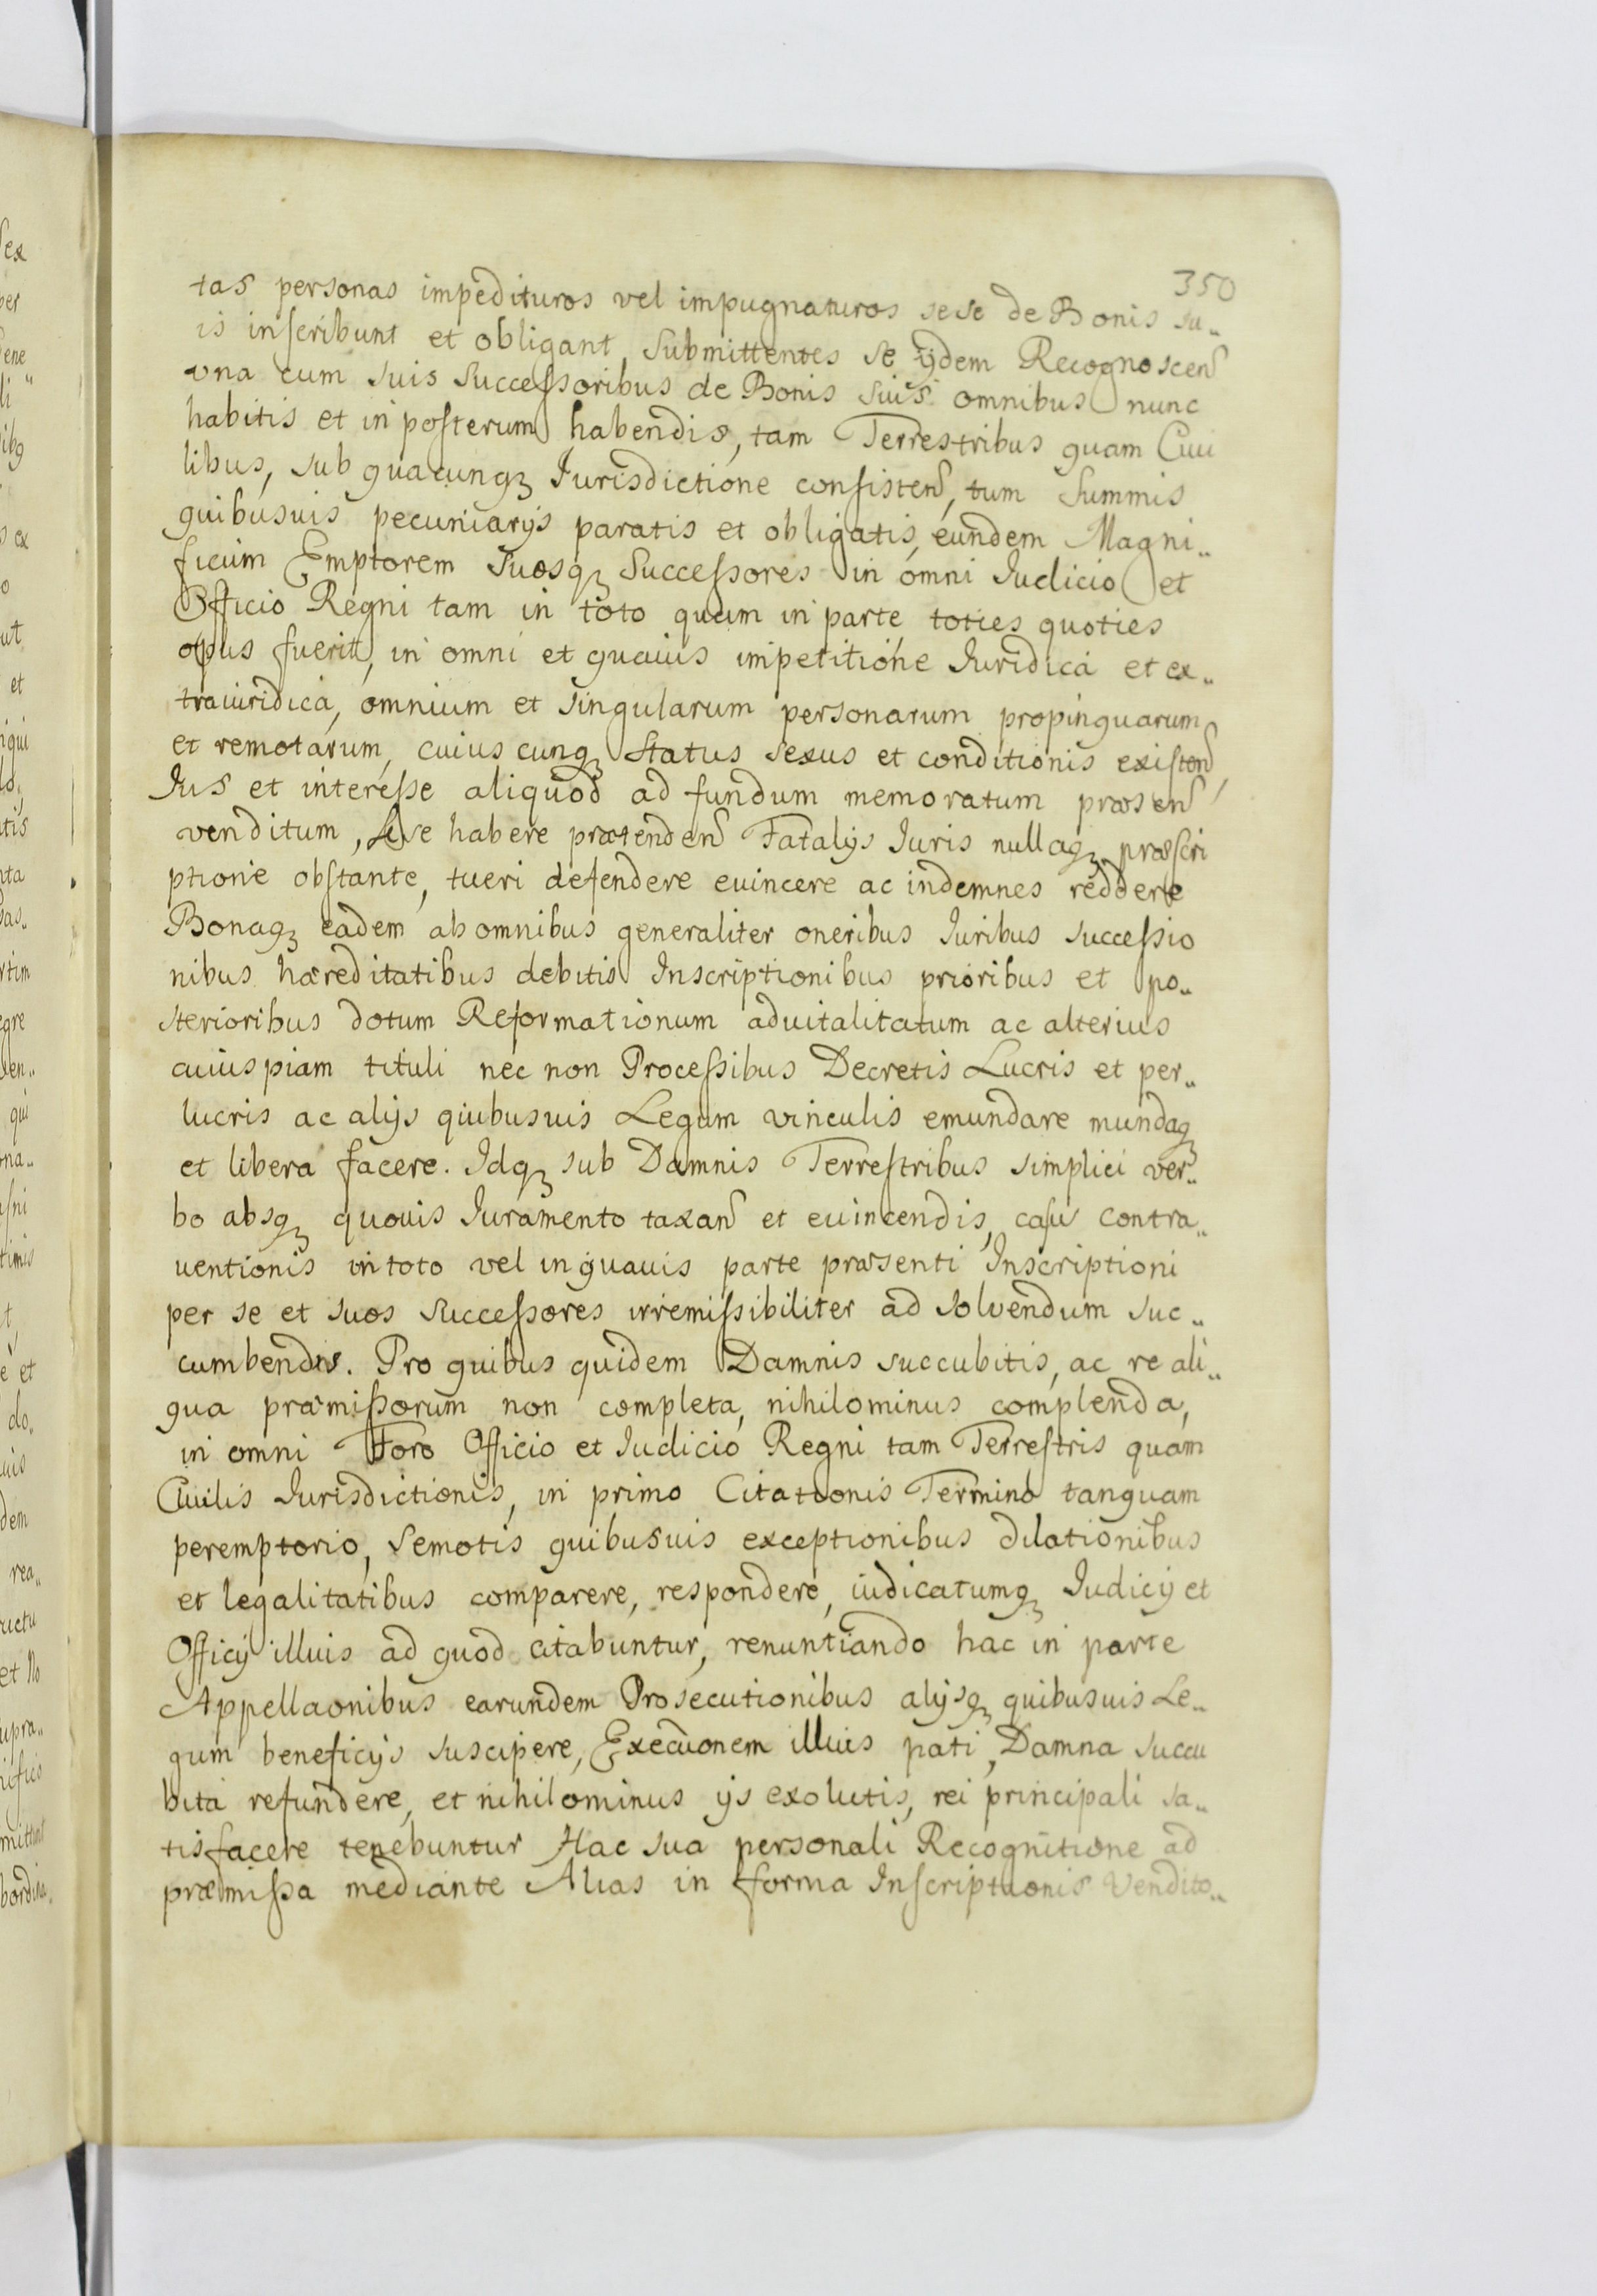 350
tas personas impedituros vel impugnaturos sese de Bonis su„
is inscribunt et obligant, submittentes se ijdem Recognoscen
vna cum suis Successoribus de Bonis suis omnibus nunc
habitis et in posterum habendis, tam Terrestribus quam Ciui
libus, sub quacunqꝫ Iurisdictione consisten, tum summis
quibusuis pecuniarijs paratis et obligatis, eundem Magni„
ficum Emptorem suosqꝫ Successores in omni Iudicio et
Officio Regni tam in toto quam in parte toties quoties
opus fuerit, in omni et quauis impetitione Iuridica et ex„
traiuridica, omnium et singularum personarum propinquarum
et remotarum, cuiuscunqꝫ Status sexus et conditionis existen,
Ius et interesse aliquod ad fundum memoratum præsen
venditum, sese habere prætenden Fatalijs Iuris nullaqꝫ præscri
ptione obstante, tueri defendere euincere ac indemnes reddere
Bonaqꝫ eadem ab omnibus generaliter oneribus Iuribus successio
nibus hæreditatibus debitis Inscriptionibus prioribus et po„
sterioribus dotum Reformationum aduitalitatum ac alterius
cuiuspiam tituli nec non Processibus Decretis Lucris et per„
lucris ac alijs quibusuis Legum vinculis emundare mundaqꝫ
et libera facere. Idqꝫ sub Damnis Terrestribus simplici ver„
bo absqꝫ quouis Iuramento taxan et euincendis, casu contra„
uentionis in toto vel in quauis parte præsenti Inscriptioni
per se et suos Successores irremissibiliter ad soluendum suc„
cumbendis. Pro quibus quidem Damnis succubitis, ac re ali„
qua præmissorum non completa, nihilominus complenda,
in omni Foro Officio et Iudicio Regni tam Terrestris quam
Ciuilis Iurisdictionis, in primo Citationis Termino tanquam
peremptorio, semotis quibusuis exceptionibus dilationibus
et legalitatibus comparere, respondere, iudicatumqꝫ Iudicij et
Officij illius ad quod citabuntur, renuntiando hac in parte
Appellaonibus earundem Prosecutionibus alijsqꝫ quibusuis Le„
gum beneficijs suscipere, Executionem illius pati, Damna succu
bita refundere, et nihilominus ijs exolutis, rei principali sa„
tisfacere tenebuntur Hac sua personali Recognitione ad
præmissa mediante Alias in forma Inscriptionis Vendito„